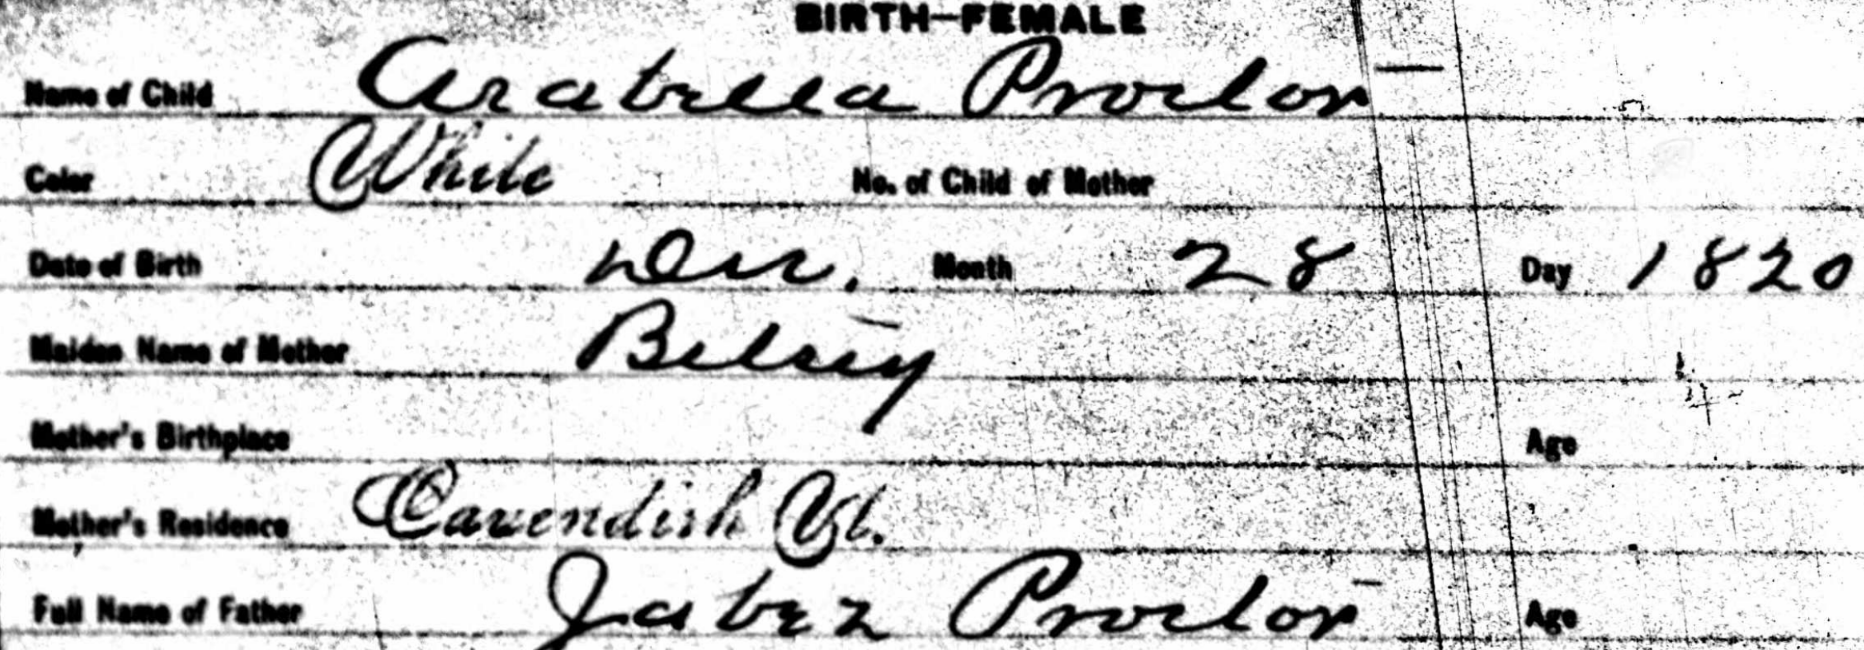 BIRTH—FEMALE
Name of Child Arabella Proctor
Color White No. of Child of Mother
Date of Birth Dec. Month 28 Day 1820
Maiden Name of Mother Betsey
Mother's Birthplace Age
Mother's Residence Cavendish Vt.
Full Name of Father Jabez Proctor Age